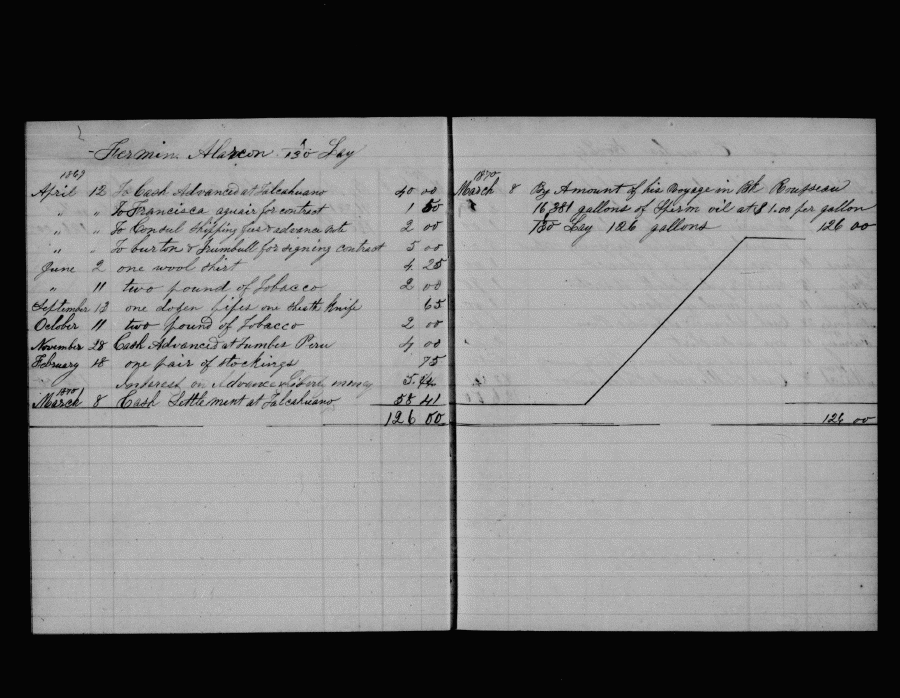 Fermin Alarcon 1/130 Lay
1869
April 12 To Cash Advanced at Talcahuano 40 00
" " To Francisca aguair for contract 1 50
" " To Consul Shipping fees & advance 2 00
" " To burton & Trumbull for signing contract 5 00
June 2 one wool shirt 4 25
" 11 two pound of Tobacco 2 00
September 13 one dozen pipes one sheath Knife 65
October 11 two pound of Tobacco 2 00
November 28 Cash Advanced at Tumbes Peru 4 00
February 18 one pair of stockings 75
Interest on Advance money 5.44
1870
March 8 Cash Settlement at Talcahuano 58 41
126 00
1870
March 8 By Amount of his Voyage in Bk Rousseau
16,381 gallons of Sperm oil at $1.00 per gallon
1/130 Lay 126 gallons 126 00
126 00